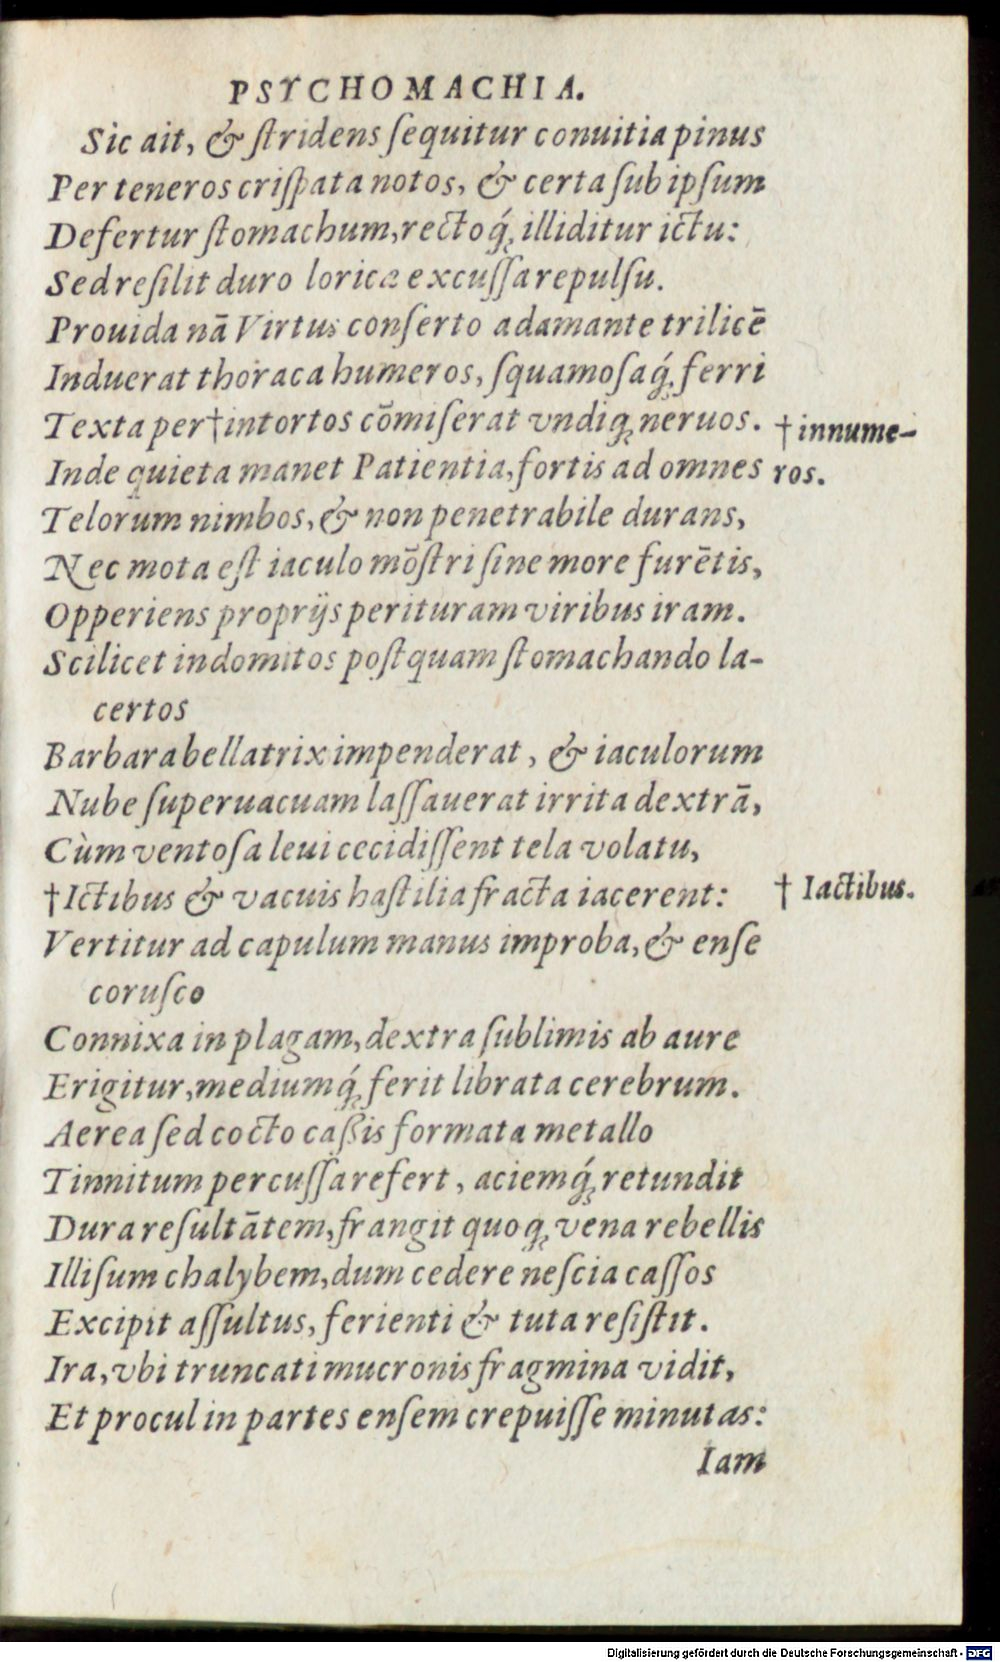 PSYCHOMACHIA.
Sic ait, & ſtridens ſequitur conuitia pinus
Per teneros criſpata notos, & certa ſub ipſum
Defertur ſtomachum, rectoq́; illiditur ictu:
Sed reſilit duro loricæ excuſſa repulſu.
Prouida nā Virtus conſerto adamante trilicē
Induerat thoraca humeros, ſquamoſaq́; ferri
Texta per †intortos cōmiſerat vndiq; neruos. † innume-
Inde quieta manet Patientia, fortis ad omnes ros.
Telorum nimbos, & non penetrabile durans,
Nec mota eſt iaculo mōſtri ſine more furētis,
Opperiens proprijs perituram viribus iram.
Scilicet indomitos poſtquam ſtomachando la-
certos
Barbara bellatrix impenderat, & iaculorum
Nube ſuperuacuam laſſauerat irrita dextrā,
Cùm ventoſa leui cecidiſſent tela volatu,
†Ictibus & vacuis haſtilia fracta iacerent: † Iactibus.
Vertitur ad capulum manus improba, & enſe
coruſco
Connixa in plagam, dextra ſublimis ab aure
Erigitur, mediumq́; ferit librata cerebrum.
Aerea ſed cocto caßis formata metallo
Tinnitum percuſſa refert, aciemq́; retundit
Dura reſultātem, frangit quoq; vena rebellis
Illiſum chalybem, dum cedere neſcia caſſos
Excipit aſſultus, ferienti & tuta reſiſtit.
Ira, vbi truncati mucronis fragmina vidit,
Et procul in partes enſem crepuiſſe minutas:
Iam
Digitalisierung gefördert durch die Deutsche Forschungsgemeinschaft - DFG